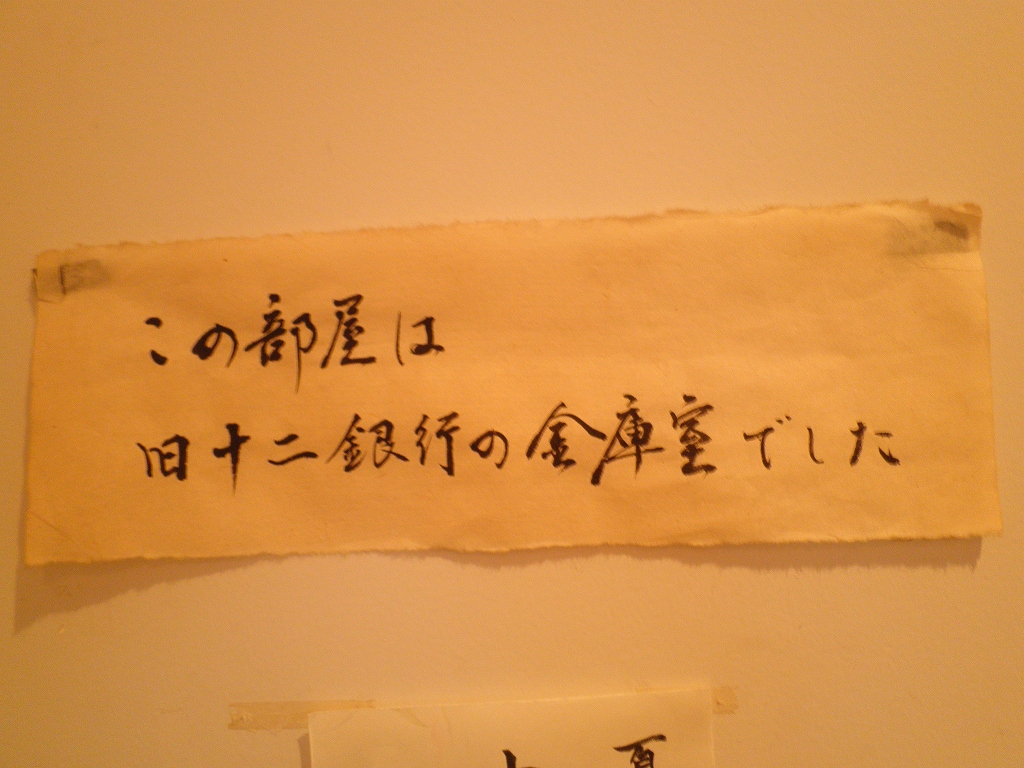 この部屋は
旧十二銀行の金庫室でした